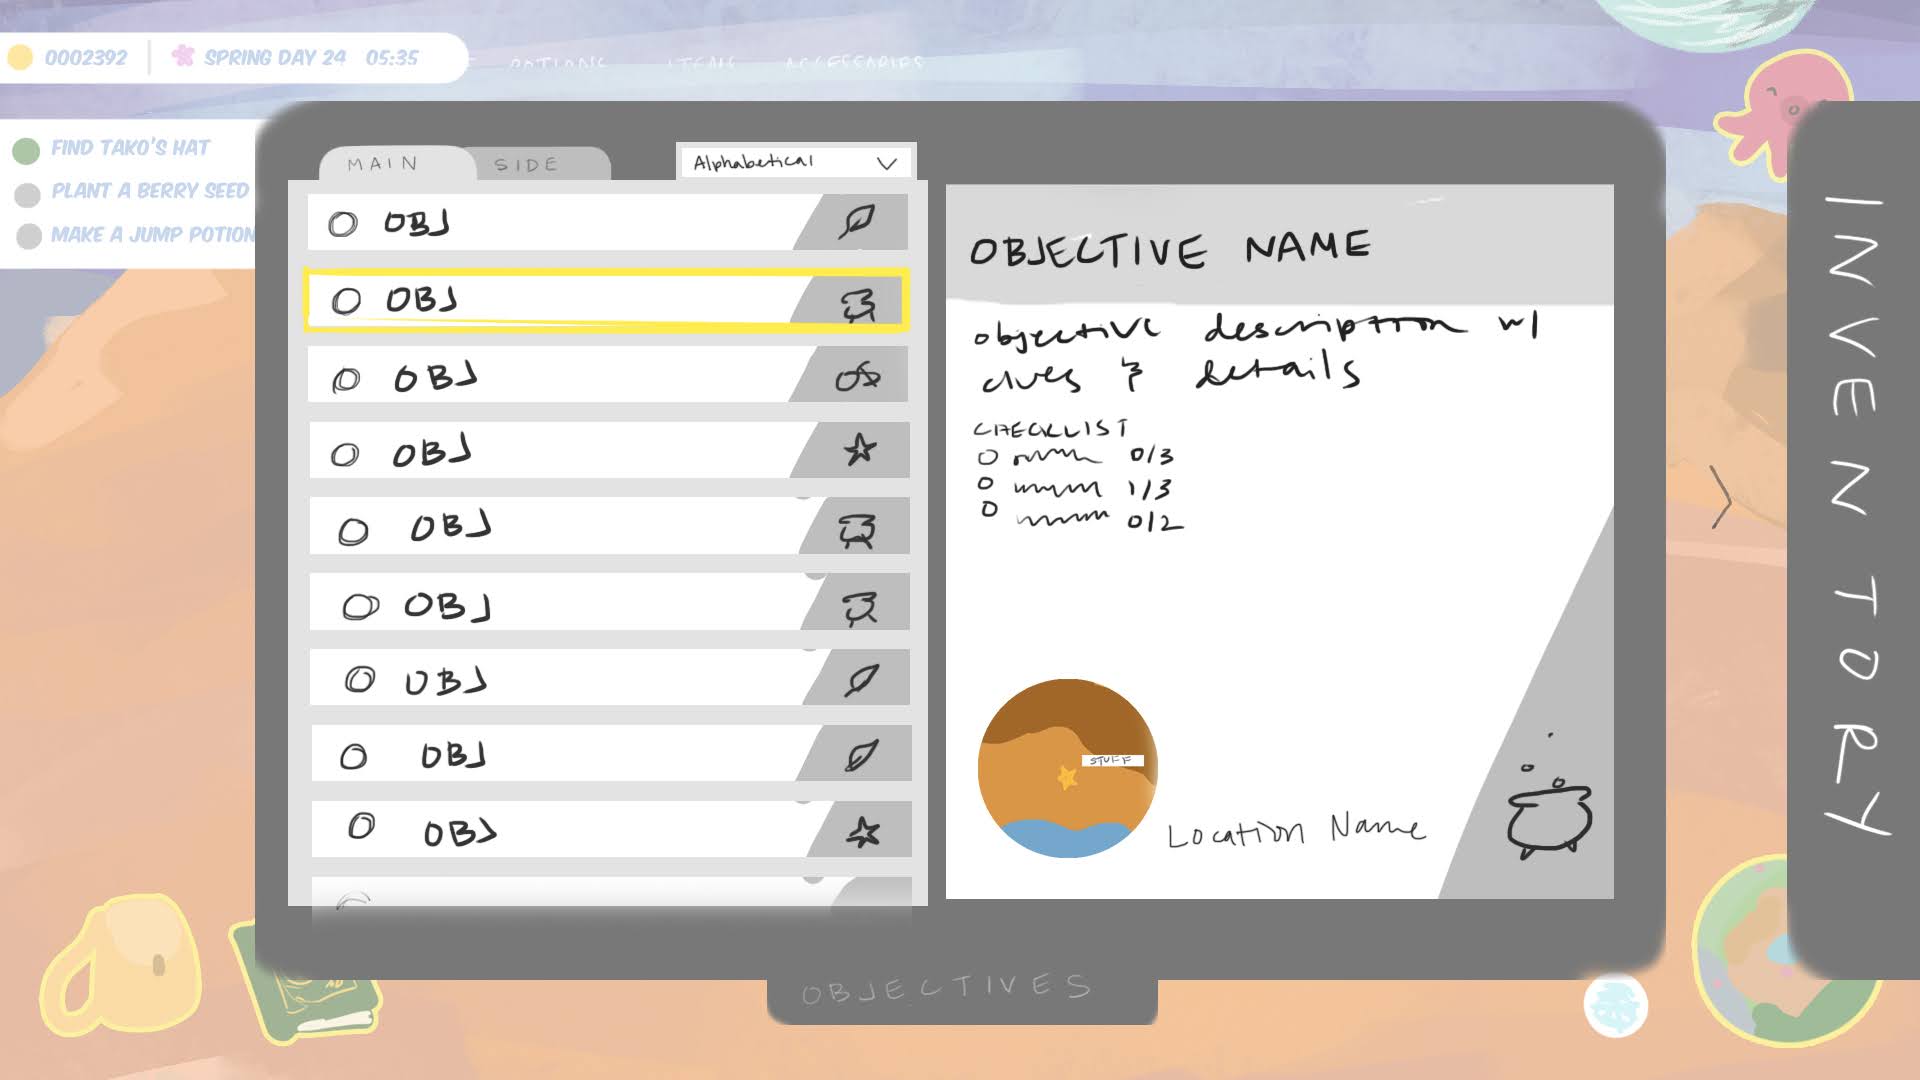 0002392 SPRING DAY 24 05:35
POTIONS ITEMS ACCESSORIES
FIND TAKO'S HAT
PLANT A BERRY SEED
MAKE A JUMP POTION
MAIN SIDE
Alphabetical
OBJ
OBJ
OBJ
OBJ
OBJ
OBJ
OBJ
OBJ
OBJ
OBJECTIVE NAME
objective description w/
clues & details
CHECKLIST
0/3
1/3
0/2
STUFF
Location Name
OBJECTIVES
INVENTORY